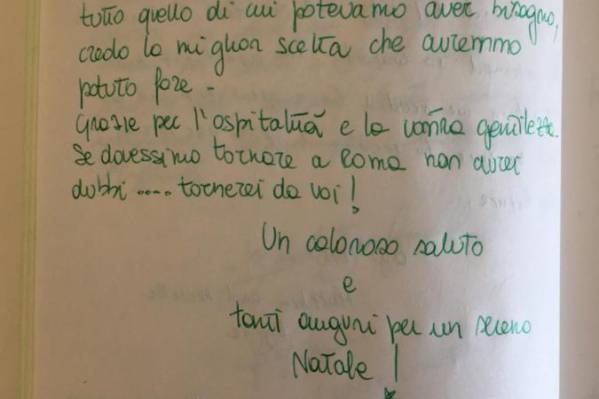 tutto quello di cui potevamo aver bisogno,
credo la miglior scelta che avremmo
potuto fare -
Grazie per l'ospitalità e la vostra gentilezza.
Se dovessimo tornare a Roma non avrei
dubbi .... tornerei da voi!
Un caloroso saluto
e
tanti auguri per un sereno
Natale!